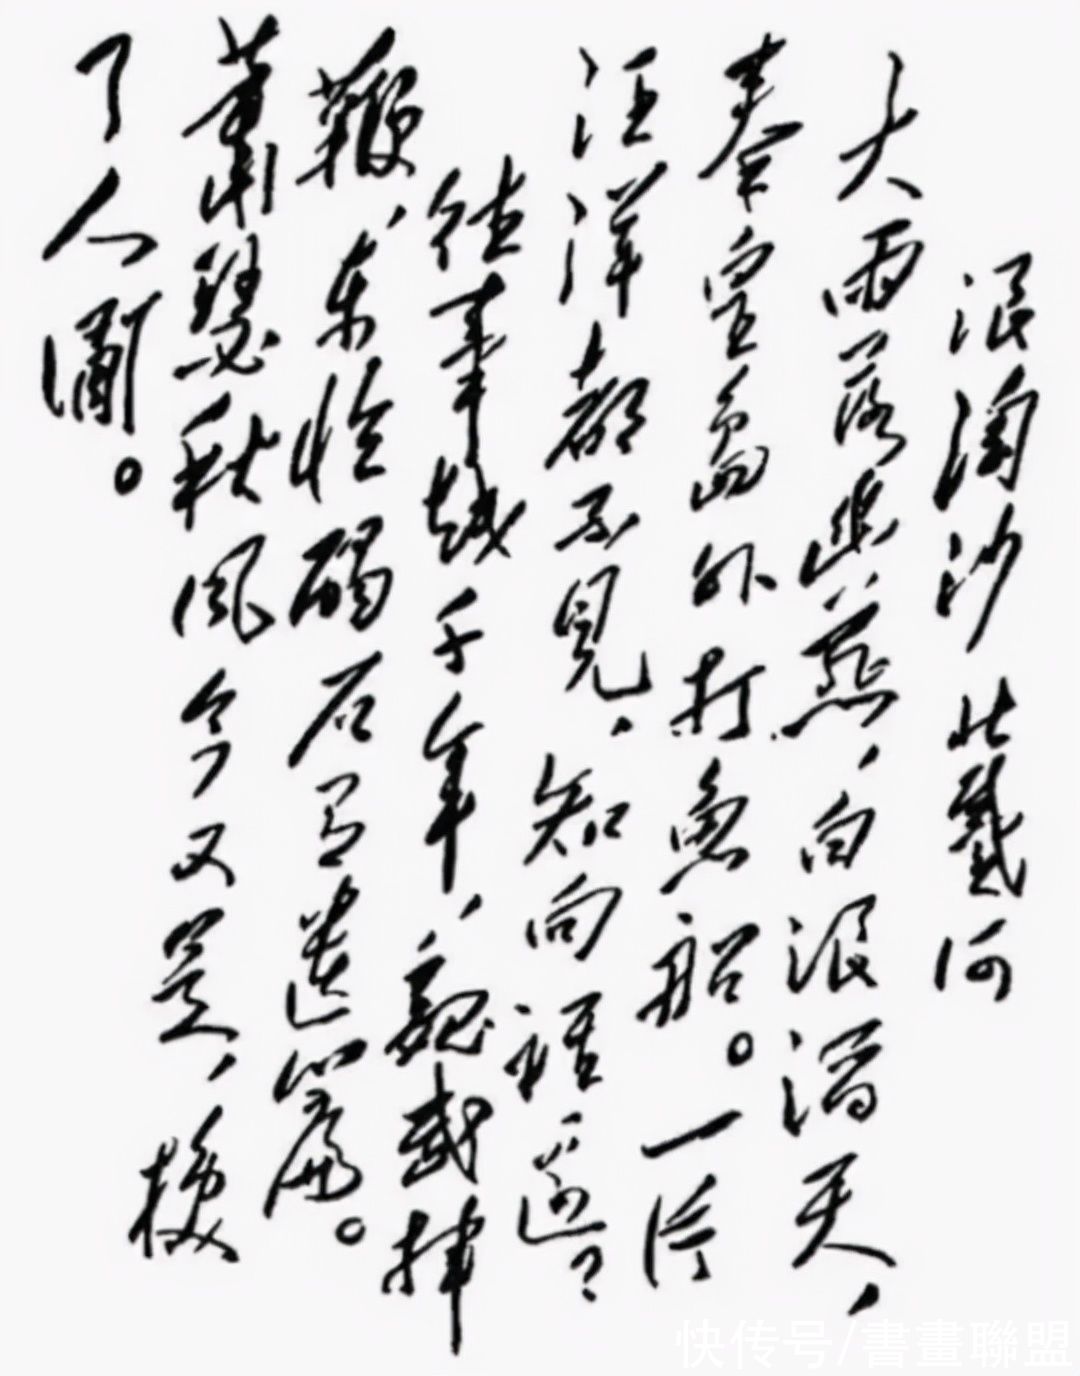 浪淘沙 北戴河
大雨落幽燕，白浪滔天，
秦皇島外打魚船。一片
汪洋都不見，知向誰邊？
往事越千年，魏武揮
鞭，東臨碣石有遺篇。
蕭瑟秋風今又是，換
了人間。
快传号/書畫聯盟